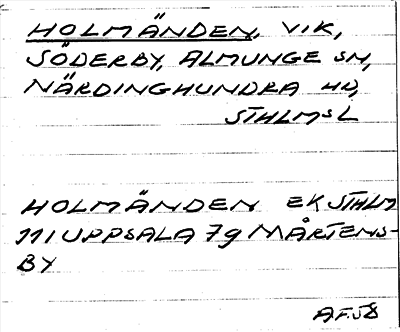 HOLMÄNDEN, VIK,
SÖDERBY, ALMUNGE SN,
NÄRDINGHUNDRA HD,
STHLMS L
HOLMÄNDEN EK STHLM
111 UPPSALA 79 MÅRTENS-
BY
AF.58